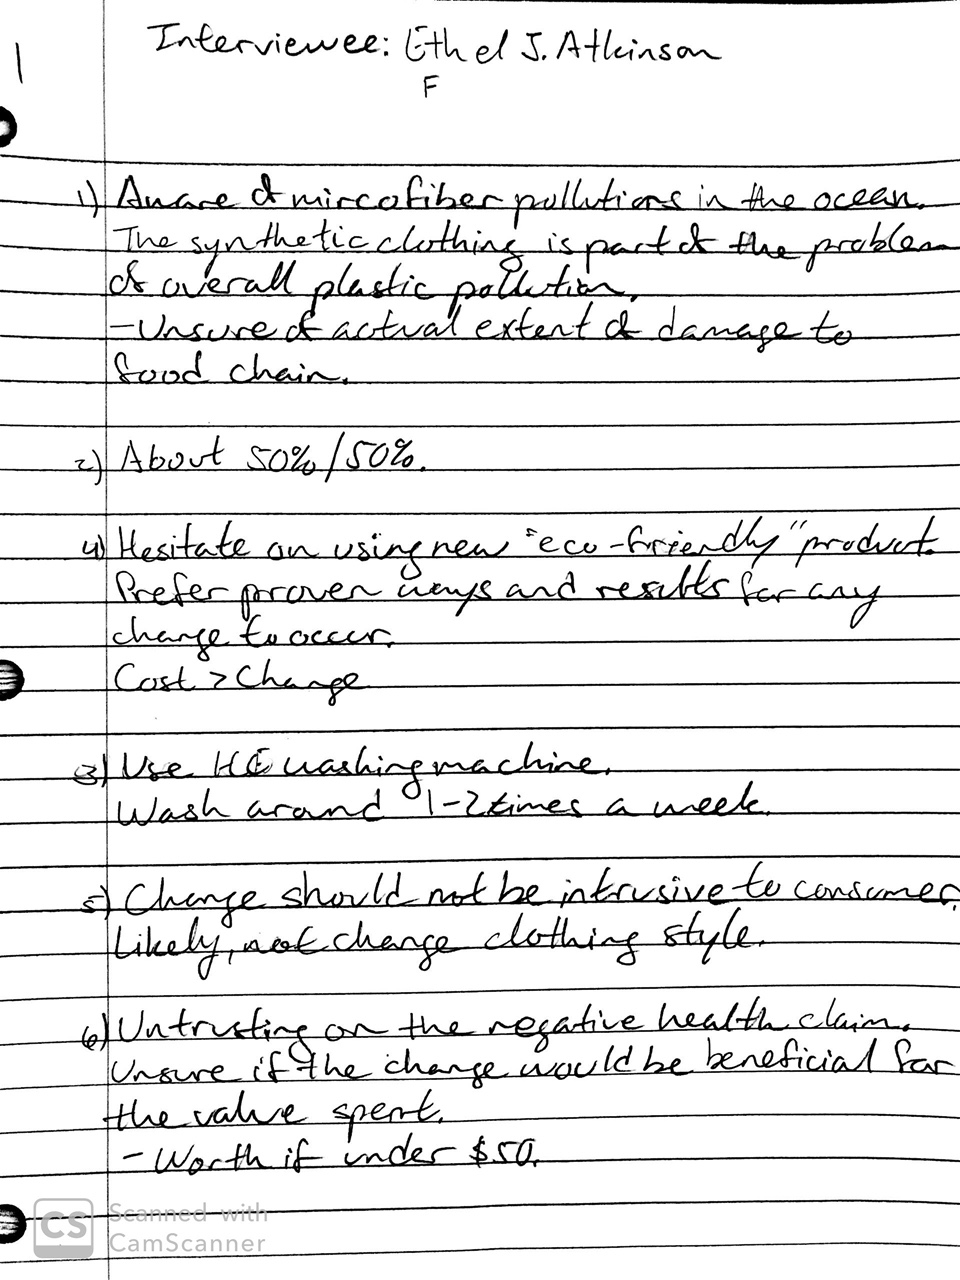 1
Interviewee: Ethel J. Atkinson
F
1) Aware of mircofiber pollutions in the ocean.
The synthetic clothing is part of the problem
of overall plastic pollution.
- Unsure of actual extent of damage to
food chain.
2) About 50%/50%.
4) Hesitate on using new "eco-friendly" product.
Prefer proven ways and results for any
change to occur.
Cost > Change
3) Use HE washing machine.
Wash around 1-2 times a week.
5) Change should not be intrusive to consumer.
Likely, not change clothing style.
6) Untrusting on the negative health claim.
Unsure if the change would be beneficial for
the value spent.
- Worth if under $50.
CS Scanned with
CamScanner